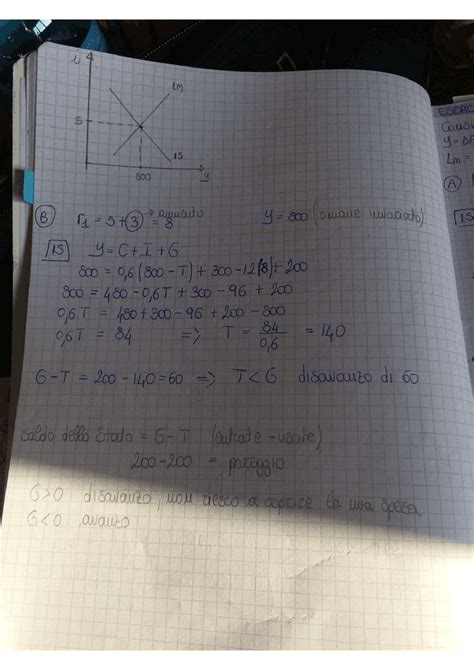 i
LM
5
IS
800
y
ESERC
Cons
Y = DA
LM =
A
IS
B r₁ = 5+3 = 8 → aumento y = 800 (rimane invariato)
IS Y = C + I + G
800 = 0,6(800 - T) + 300 - 12(8) + 200
800 = 480 - 0,6T + 300 - 96 + 200
0,6T = 480 + 300 - 96 + 200 - 800
0,6T = 84 => T = 84/0,6 = 140
G - T = 200 - 140 = 60 => T < G disavanzo di 60
Saldo dello Stato = G - T (entrate - uscite)
200 - 200 = pareggio
G>0 disavanzo, non riesco a coprire la mia spesa
G<0 avanzo